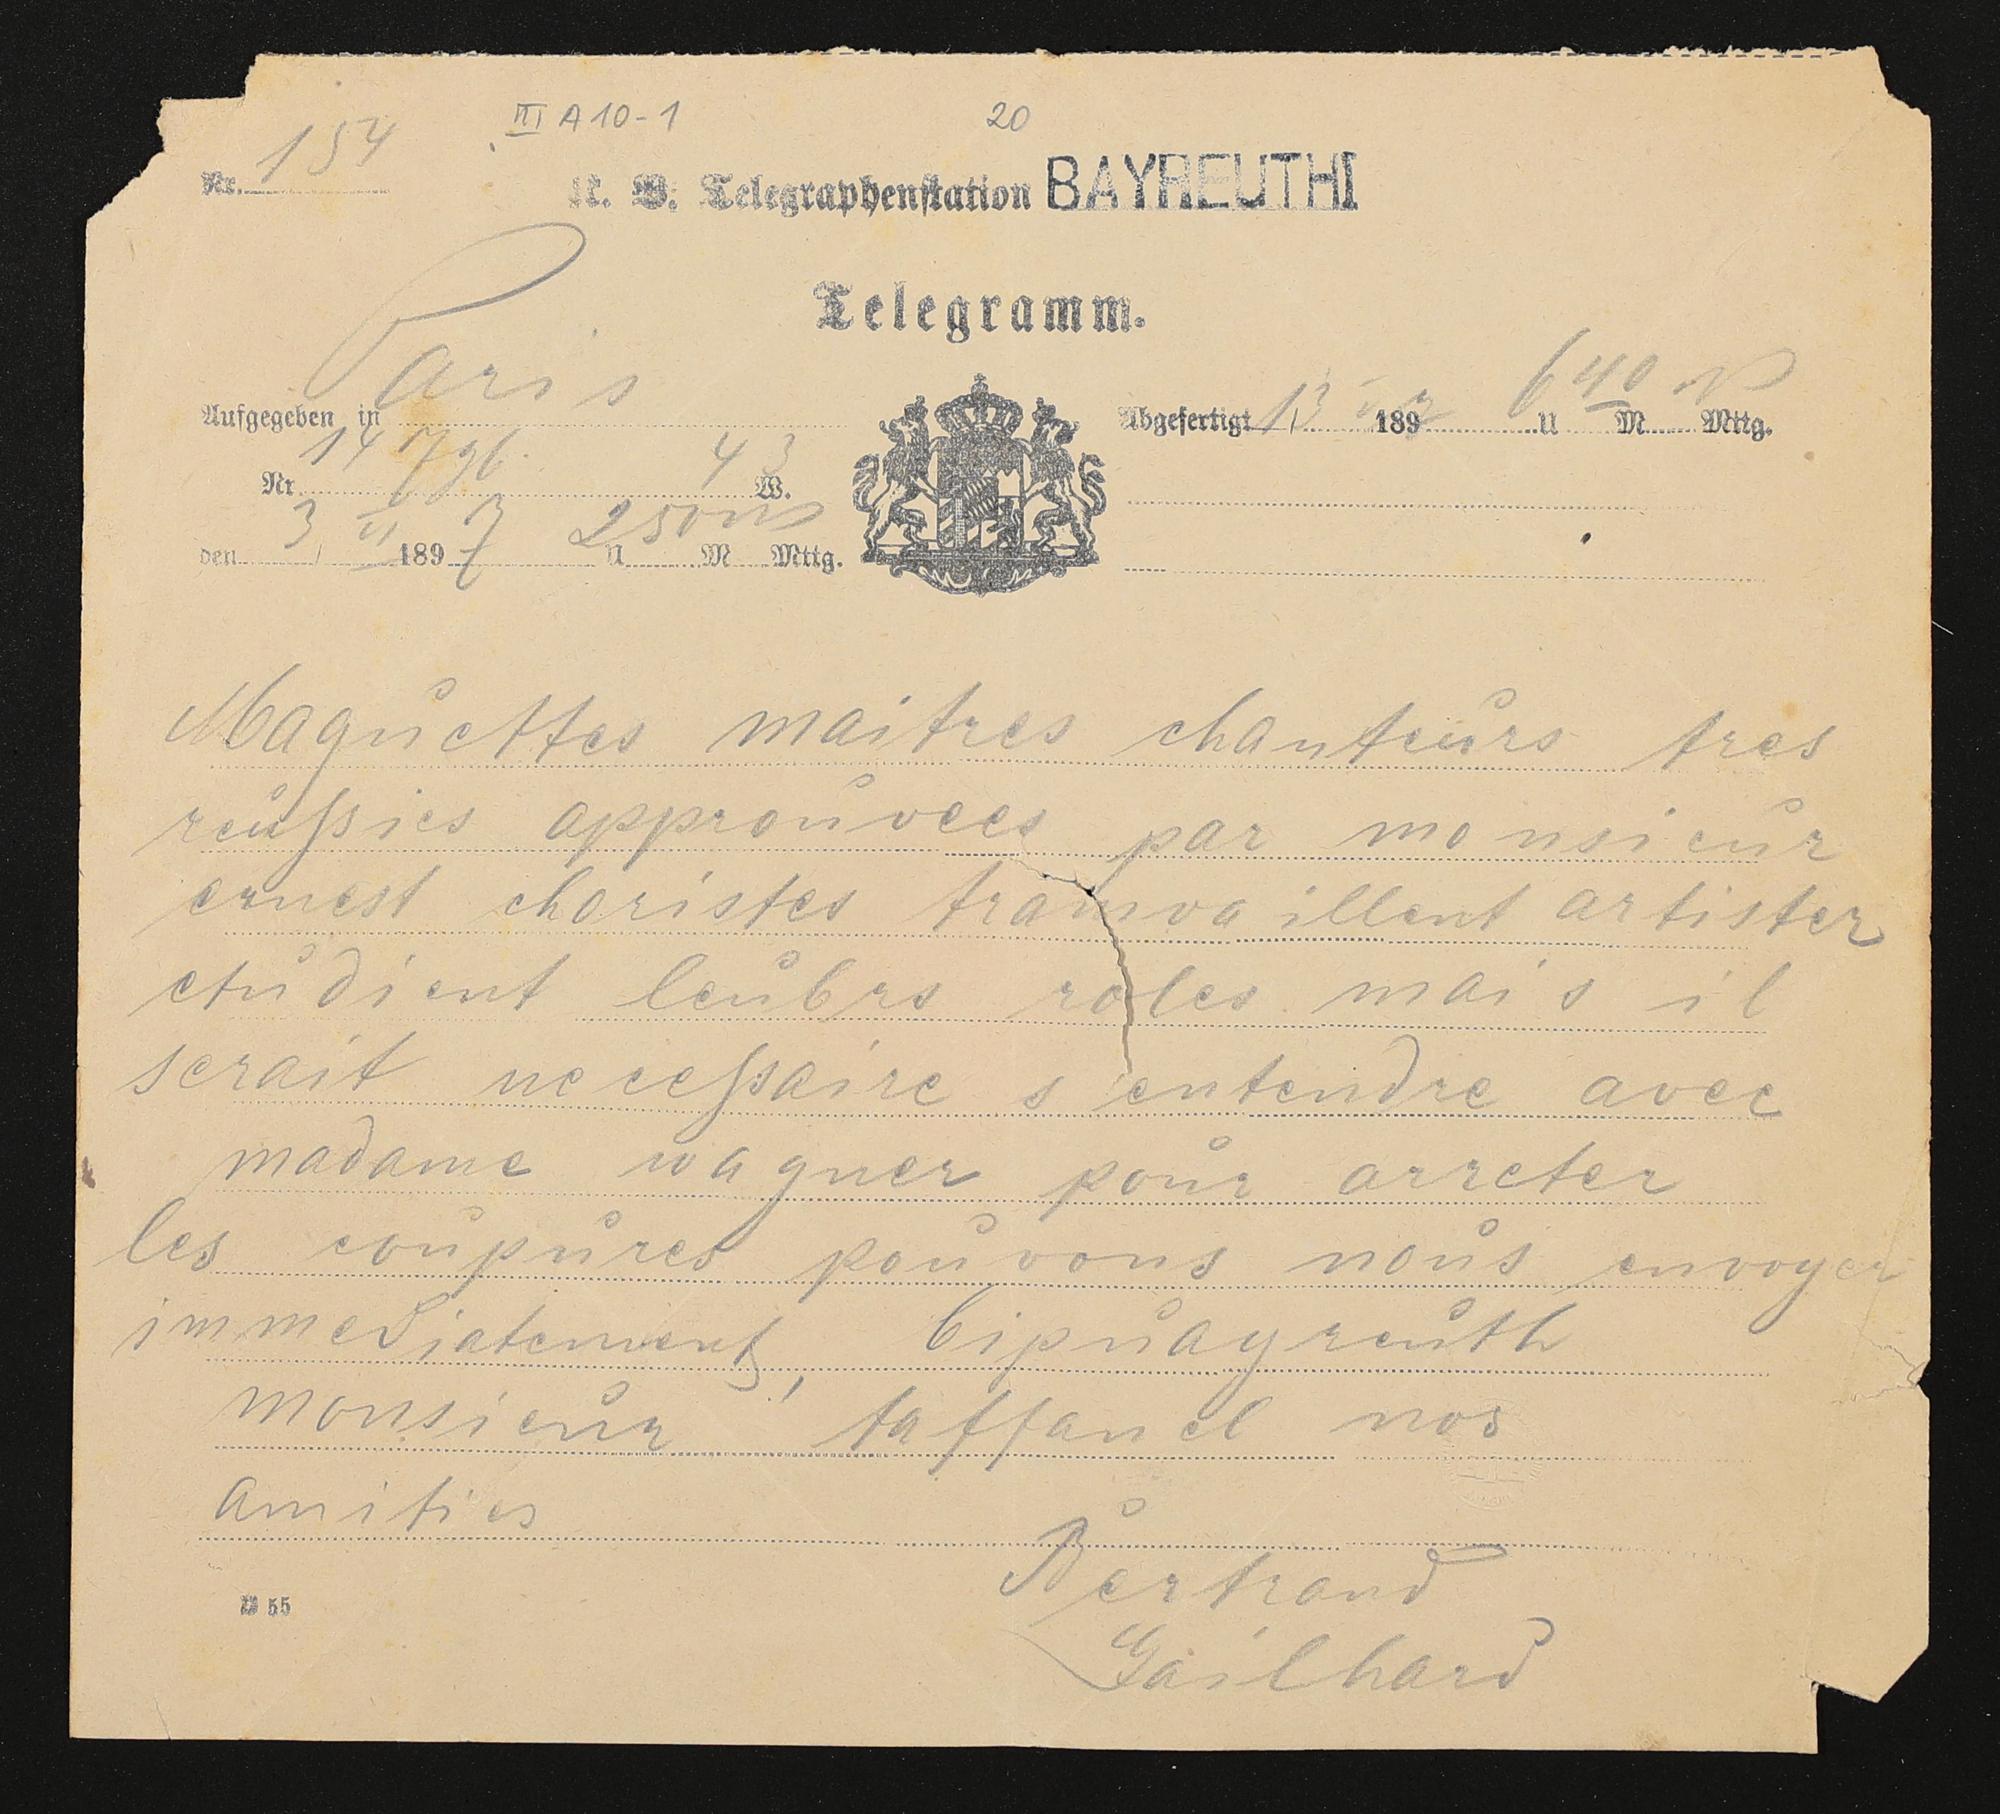 III A 10-1 20
Nr. 154
K. B. Telegraphenstation BAYREUTH I
Telegramm.
Aufgegeben in Paris
Abgefertigt 13 189 U 6 40 M Mttg.
Nr. 43 W.
den 3 VI 1897 U 250 M Mttg.
Maquettes maitres chanteurs tres
reussies approuvees par monsieur
ernest choristes tramvaillent artister
etudient leubrs roles mais il
serait necessaire s'entendre avec
madame wagner pour arreter
les coupures pouvons nous envoyer
immediatement, bipuayreuth
monsieur taffanel nos
amities
Bertrand
Gailhard
D 55